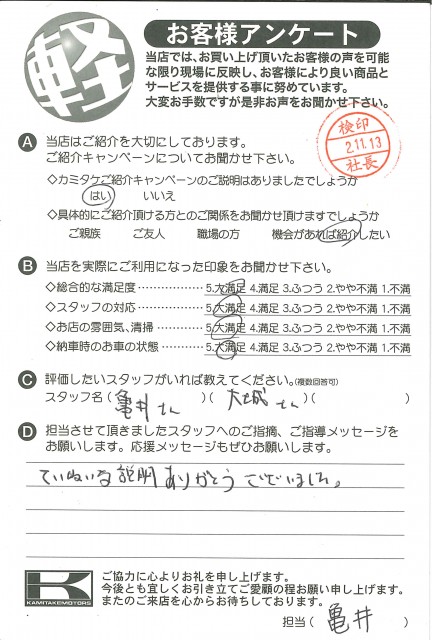 軽
お客様アンケート
当店では、お買い上げ頂いたお客様の声を可能
な限り現場に反映し、お客様により良い商品と
サービスを提供する事に努めています。
大変お手数ですが是非お声をお聞かせ下さい。
検印
2.11.13
社長
A 当店はご紹介を大切にしております。
ご紹介キャンペーンについてお聞かせ下さい。
◇カミタケご紹介キャンペーンのご説明はありましたでしょうか
はい いいえ
◇具体的にご紹介頂ける方とのご関係をお聞かせ頂けますでしょうか
ご親族 ご友人 職場の方 機会があれば紹介したい
B 当店を実際にご利用になった印象をお聞かせ下さい。
◇総合的な満足度……………5.大満足 4.満足 3.ふつう 2.やや不満 1.不満
◇スタッフの対応……………5.大満足 4.満足 3.ふつう 2.やや不満 1.不満
◇お店の雰囲気、清掃…………5.大満足 4.満足 3.ふつう 2.やや不満 1.不満
◇納車時のお車の状態…………5.大満足 4.満足 3.ふつう 2.やや不満 1.不満
C 評価したいスタッフがいれば教えてください。(複数回答可)
スタッフ名(亀井さん)(大城さん)( )
D 担当させて頂きましたスタッフへのご指摘、ご指導メッセージを
お願いします。応援メッセージもぜひお願いします。
ていねいな説明ありがとうございました。
K
KAMITAKEMOTORS
ご協力に心よりお礼を申し上げます。
今後とも宜しくお引き立てご愛顧の程お願い申し上げます。
またのご来店を心からお待ちしております。
担当(亀井)